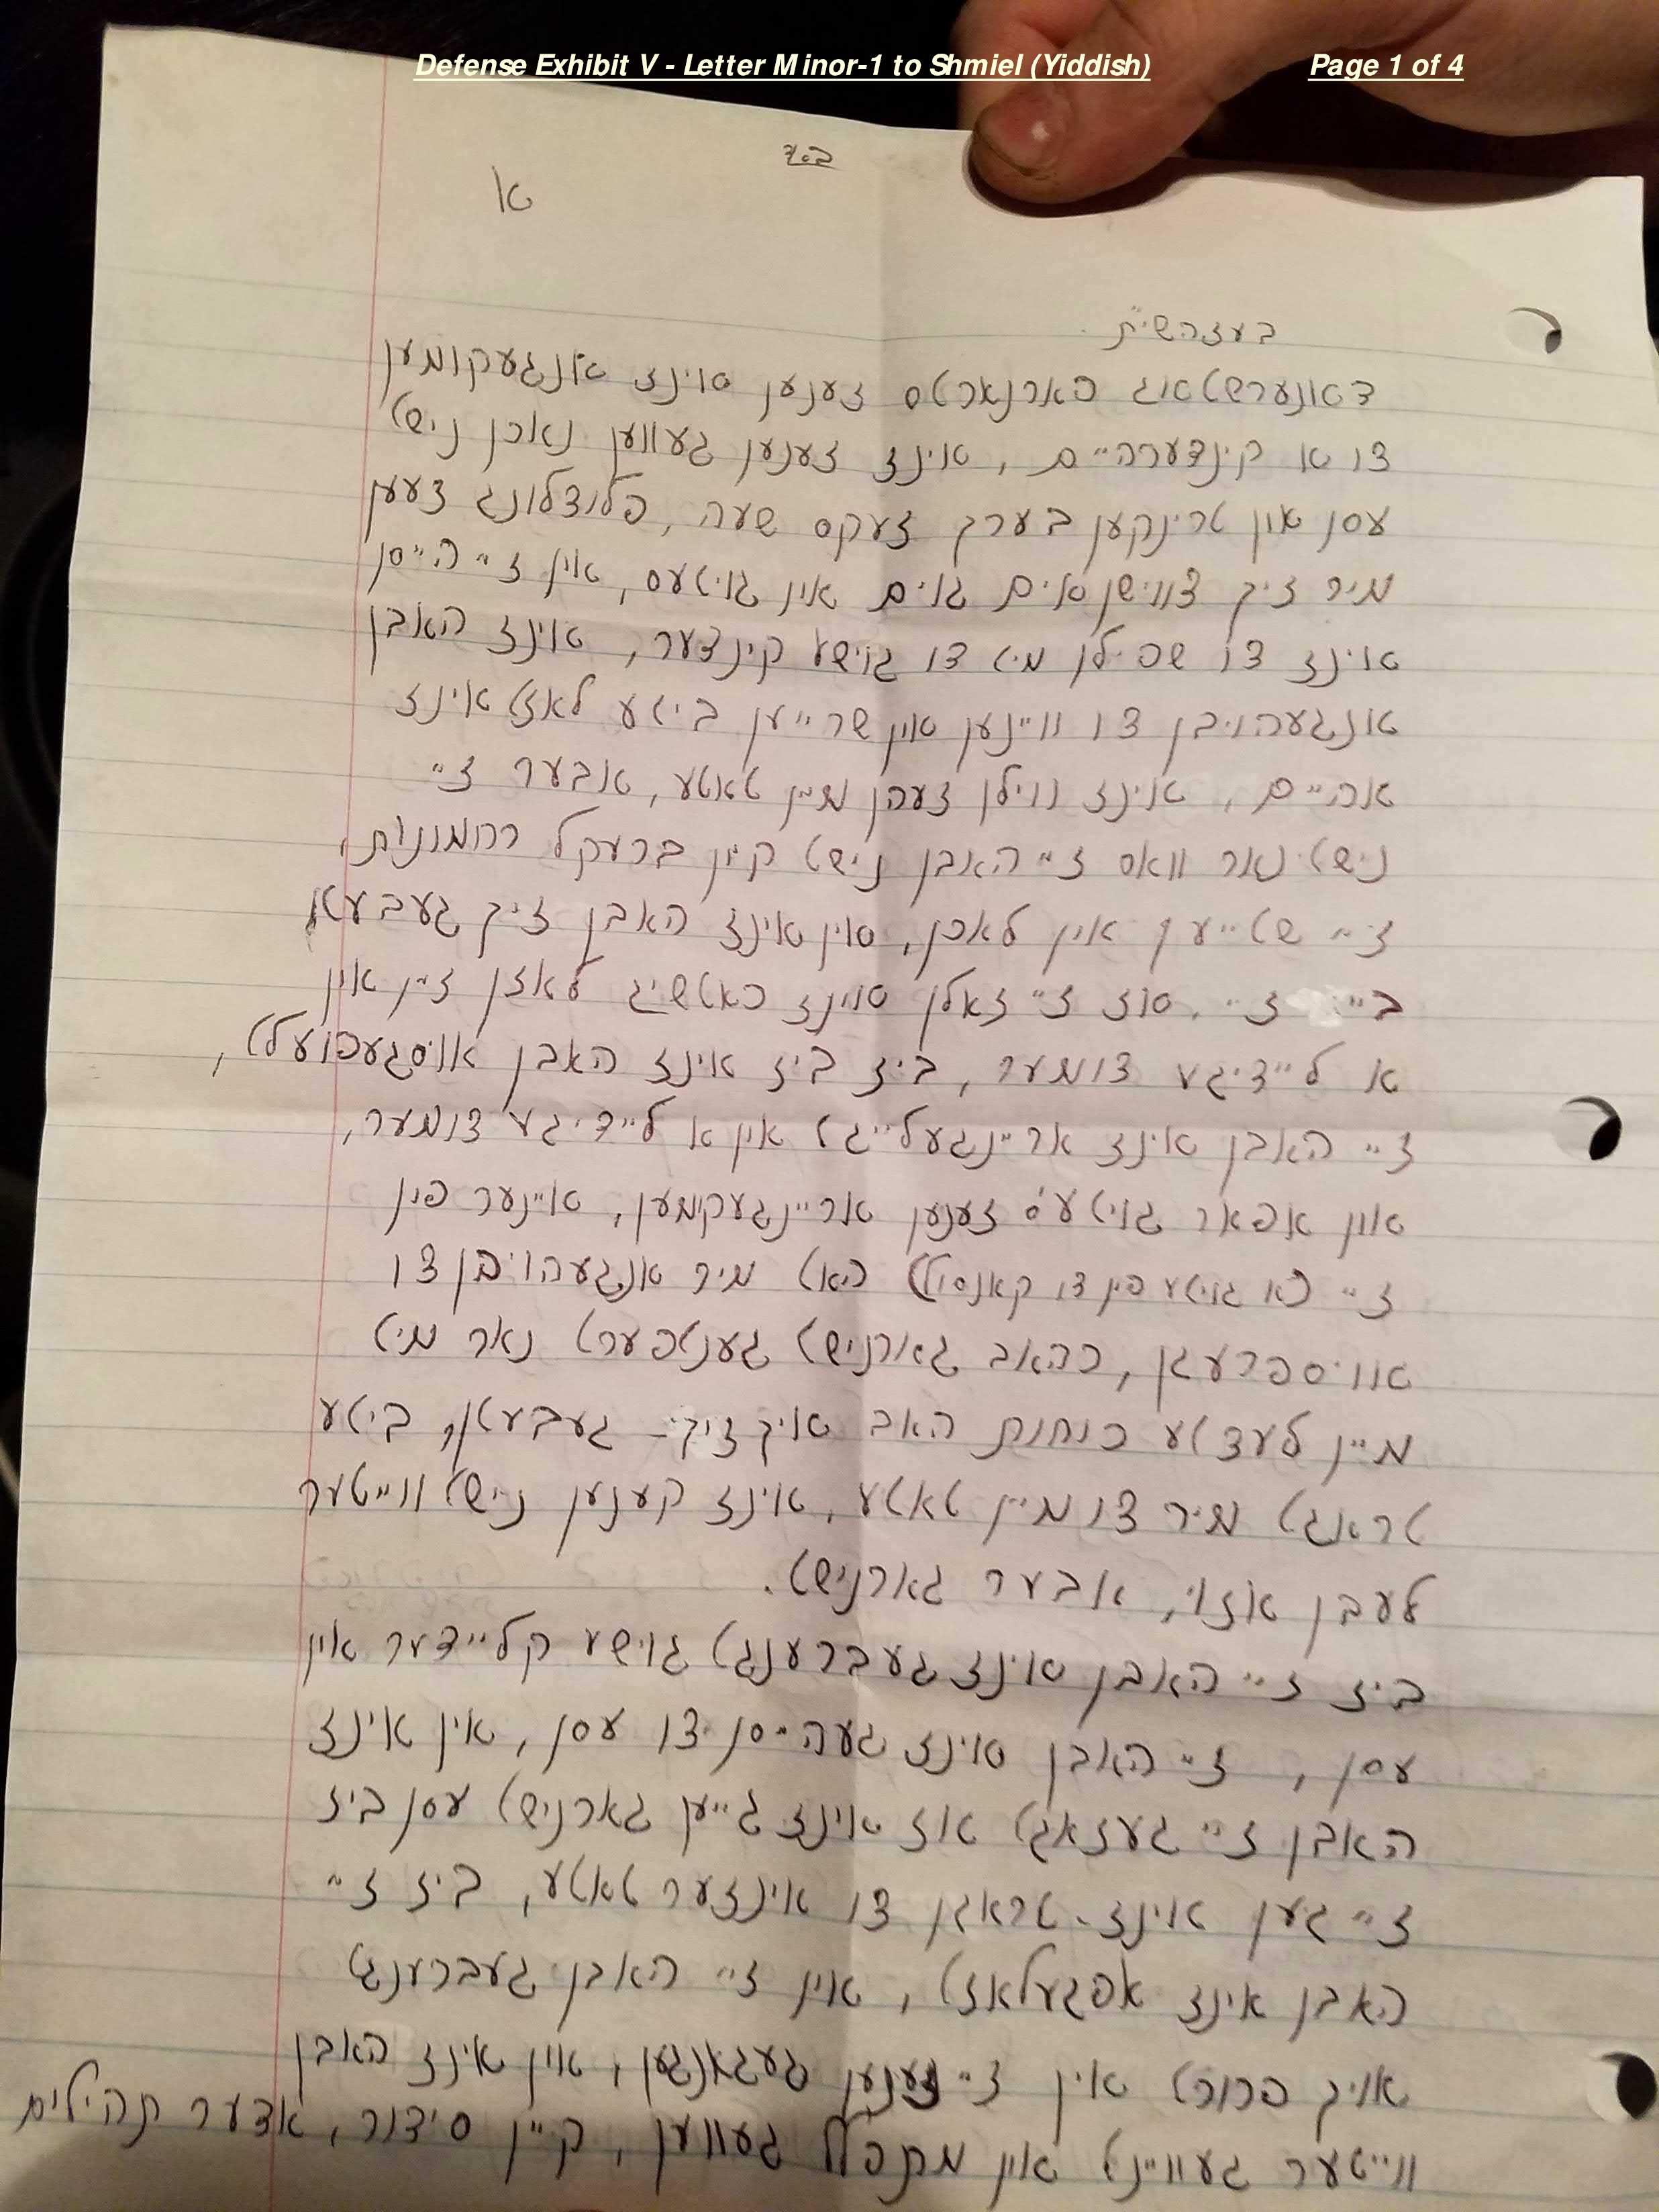 Defense Exhibit V - Letter Minor-1 to Shmiel (Yiddish) Page 1 of 4
ב.ה
א
בעזהשי״ת
דאונערשטאג פארנארטס זענען אוינז אנגעקומען
צו א קינדערהיים, אוינז זענען געווען נאכן נישט
עסן און טרינקען בערך זעקס שעה, פלוצלונג זעען
מיר זיך צווישן גוים אין גויטעס, אוין זיי הייסן
אוינז צו שפילן מיט צו גוישע קינדער, אוינז האבן
אנגעהויבן צו וויינען אוין שרייען ביטע לאזט אינז
אהיים, אוינז ווילן זעהן מיין טאטע, אבער זיי
נישט נאר וואס זיי האבן נישט קיין ברעקל רחמנות,
זיי שטייען אין לאכן, אוין אוינז האבן זיך געבעטן
ביי זיי, אוז זיי זאלן אוינז כאטשיג לאזן זיין אין
א ליידיגע צומער, ביז ביז אינז האבן אויסגעפועלט,
זיי האבן אוינז אריינגעלייגט אין א ליידיגע צומער,
אוון אפאר גויטע'ס זענען אריינגעקימען, איינער פין
זיי א גויטע פין צו קאנסיל האט מיר אנגעהויבן צו
אויספרעגן, כהאב גארנישט גענטפערט נאר מיט
מיין לעצטע כוחות האב איך זיך געבעטן, ביטע
טראגט מיר צו מיין טאטע, אוינז קענען נישט ווייטער
לעבן אזוי, אבער גארנישט.
ביז זיי האבן אוינז געברענגט גוישע קליידער אין
עסן, זיי האבן אוינז געהייסן צו עסן, אין אינז
האבן זיי געזאגט אוז אוינז גייען גארנישט עסן ביז
זיי גען אוינז טראגן צו אינזער טאטע, ביז זיי
האבן אינז אפגעלאזט, אוין זיי האבן געברענגט
אויך פרוט אין זיי זענען געגאנגען, אוין אינז האבן
ווייטער געוויינט אין מתפלל געווען, קיין סידור, אדער תהילים